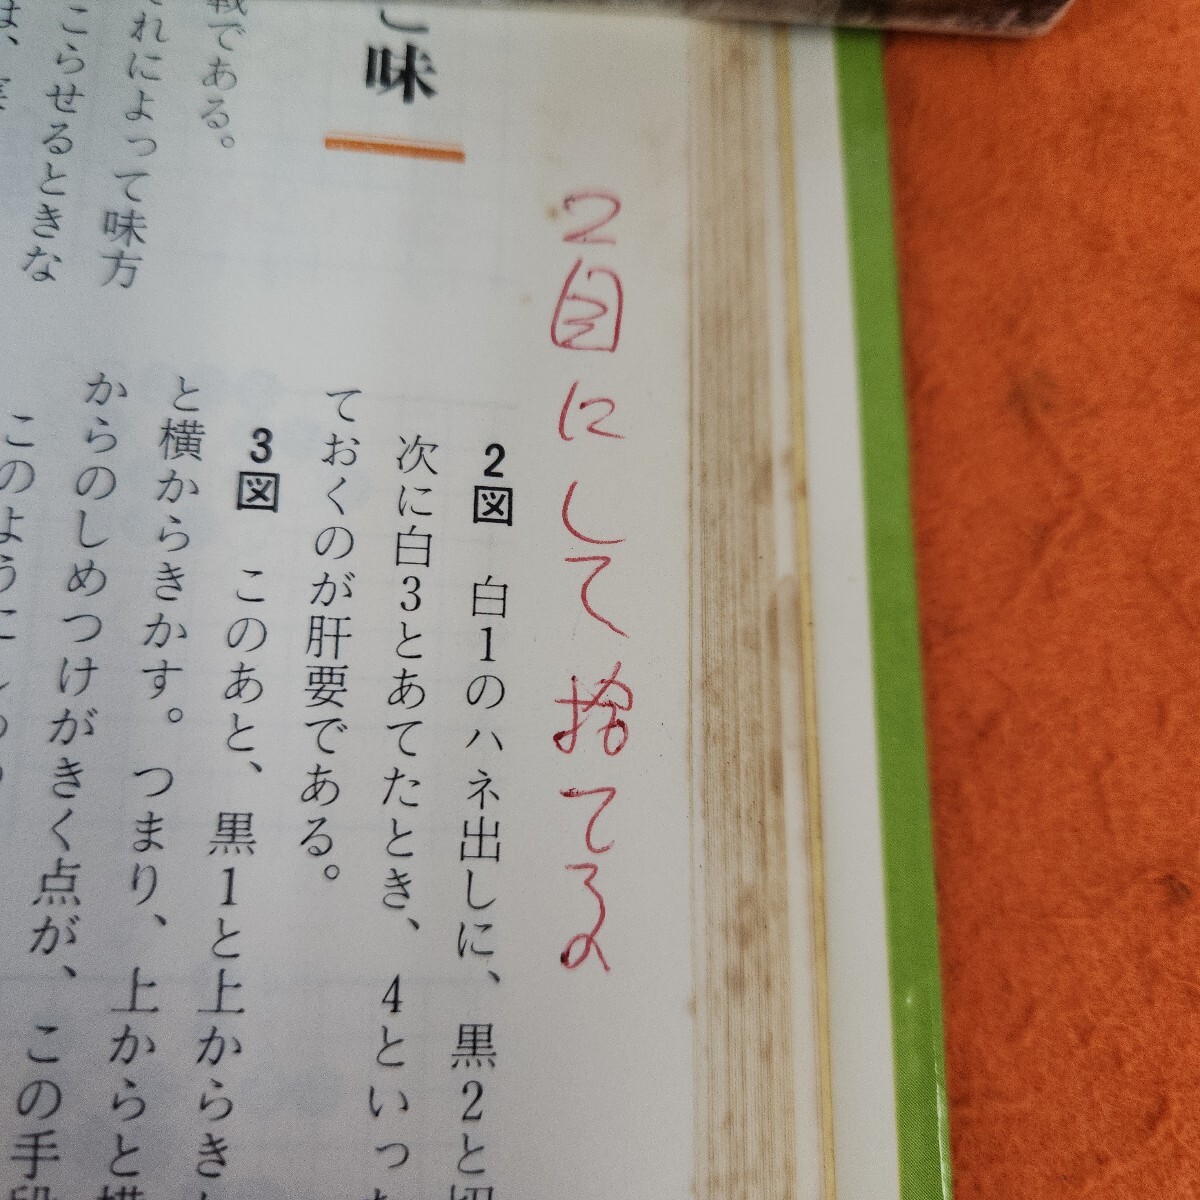 2目にして捨てる
味
戦である。
れによって味方
こらせるときな
2図 白1のハネ出しに、黒2と切
次に白3とあてたとき、4といっ
ておくのが肝要である。
3図 このあと、黒1と上からき
と横からきかす。つまり、上からと横
からのしめつけがきく点が、この手段
このように